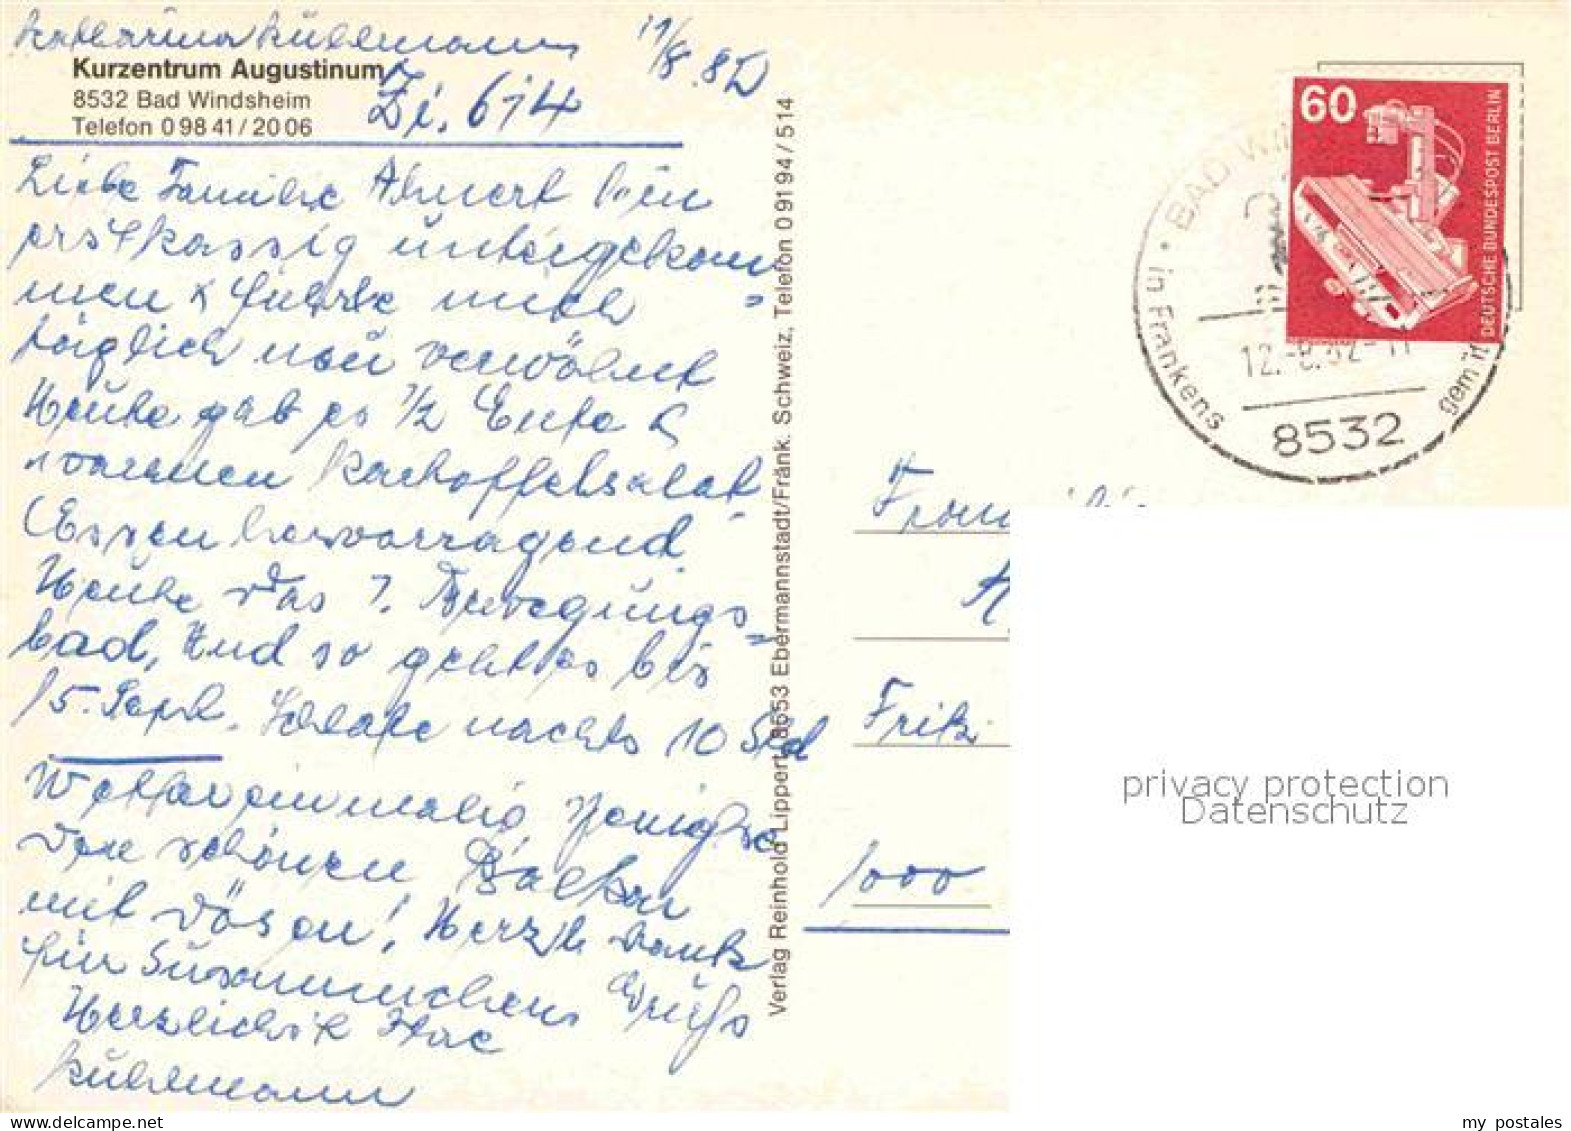 Katharina Kühlmann 11/8.82
Kurzentrum Augustinum
8532 Bad Windsheim
Telefon 0 98 41 / 20 06
Zi. 614
Liebe Familie Ahnert bin
erstkassig untergekom
men & fühle mich
täglich neu verwöhnt
Heute gab es 1/2 Ente &
warmen Kartoffelsalat
(Essen hervorragend
Heute das 7. Bewegungs=
bad, Und so geht es bis
15. Sept. Schlafe nachts 10 Std
Wetter einmalig,
den schönen Balkon
mit dösen! Herzl. Dank
für Grüße
Herzlichst Ihre
Kühlmann
Verlag Reinhold Lippert, 8553 Ebermannstadt/Fränk. Schweiz, Telefon 0 91 94 / 514
60
DEUTSCHE BUNDESPOST BERLIN
BAD Wi
in Frankens
gem
12.-8.82-11
8532
Fritz
1000
privacy protection
Datenschutz
my_postales